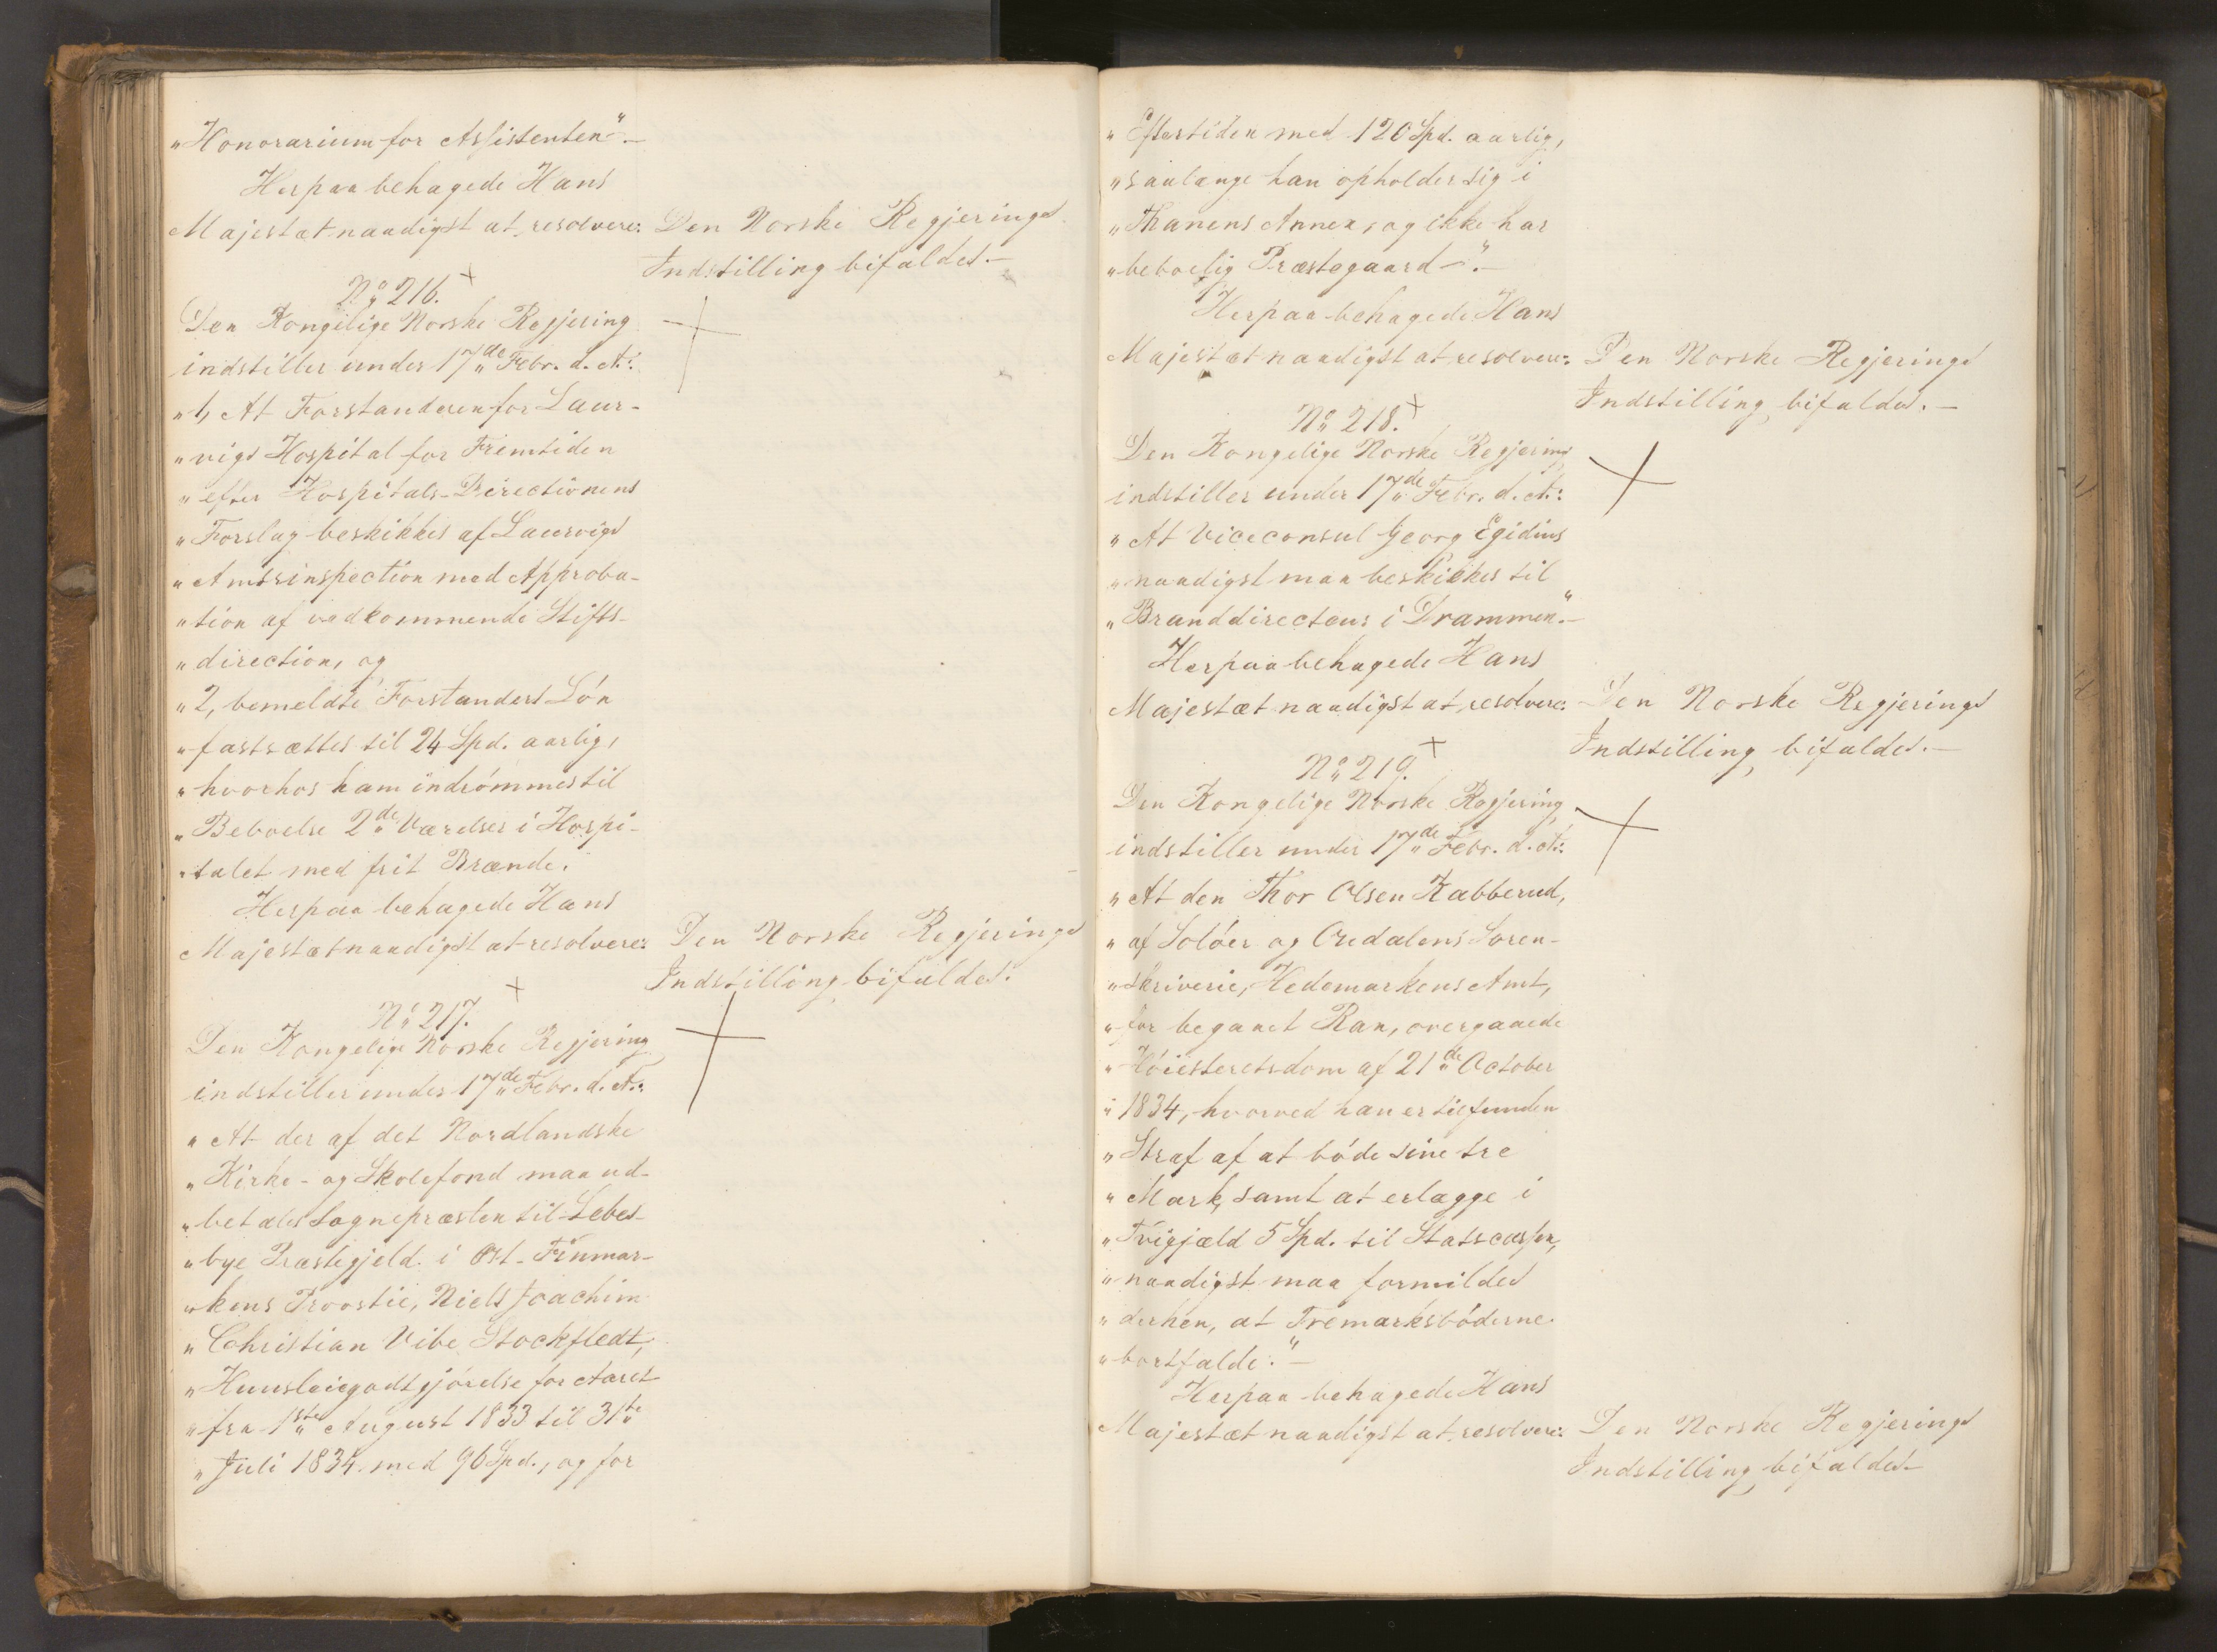 „Honorarium for Assistenten".—
Herpaa behagede Hans
Majestæt naadigst at resolvere: Den Norske Regjerings
Indstilling bifaldes.—
No 216.
Den Kongelige Norske Regjering
indstiller under 17de Febr. d. A.:
„1, At Forstanderen for Laur-
„vigs Hospital for Fremtiden
„efter Hospitals-Directionens
„Forslag beskikkes af Laurvigs
„Amtsinspection med Approba-
„tion af vedkommende Stifts-
„direction, og
„2, bemeldte Forstanders Lön
„fastsættes til 24 Spd. aarlig,
„hvorhos ham indrömmes til
„Beboelse 2de Værelser i Hospi-
„talet med frit Brænde.
Herpaa behagede Hans
Majestæt naadigst at resolvere: Den Norske Regjerings
Indstilling bifaldes.
No 217.
Den Kongelige Norske Regjering
indstiller under 17de Febr. d. A.:
„At der af det Nordlandske
„Kirke- og Skolefond maa ud-
„betales Sognepræsten til Lebes-
„bye Præstegjeld i Ost-Finmar-
„kens Provstie, Niels Joachim
„Christian Vibe Stockfledt,
„Huusleiegodtgjörelse for Aaret
„fra 1ste August 1833 til 31te
„Juli 1834 med 96 Spd., og for
„Eftertiden med 120 Spd. aarlig,
„saalænge han opholder sig i
„Thanens Annex, og ikke har
„beboelig Præstegaard".—
Herpaa behagede Hans
Majestæt naadigst at resolvere: Den Norske Regjerings
Indstilling bifaldes.—
No 218.
Den Kongelige Norske Regjering
indstiller under 17de Febr. d. A.:
„At Viceconsul Georg Egidius
„naadigst maa beskikkes til
„Branddirecteur i Drammen".—
Herpaa behagede Hans
Majestæt naadigst at resolvere: Den Norske Regjerings
Indstilling bifaldes.—
No 219.
Den Kongelige Norske Regjering
indstiller under 17de Febr. d. A.:
„At den Thor Olsen Kabberud,
„af Solöer og Oudalens Soren-
„skriverie, Hedemarkens Amt,
„for begaaet Ran, overgaaede
„Höiesteretsdom af 21de October
„1834, hvorved han er tilfunden
„Straf af at böde sine tre
„Mark, samt at erlægge i
„Tvigjæld 5 Spd. til Statscassen,
„naadigst maa formildes
„derhen, at Tremarksböderne
„bortfalde."—
Herpaa behagede Hans
Majestæt naadigst at resolvere: Den Norske Regjerings
Indstilling bifaldes—